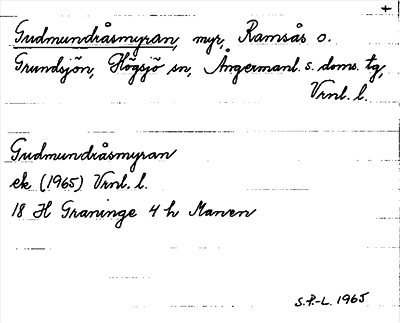 Gudmundråsmyran, myr, Ramsås o.
Grundsjön, Högsjö sn, Ångermanl. s. doms. tg,
Vrnl. l.
Gudmundråsmyran
ek (1965) Vrnl. l.
18 H Graninge 4 h Manen
S.P.-L. 1965